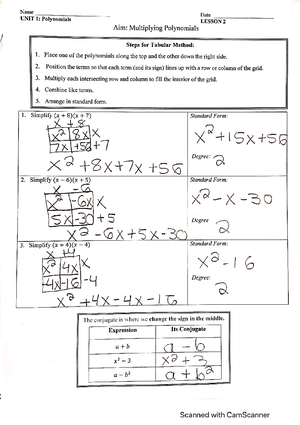 Name
Date
UNIT 1: Polynomials
LESSON 2
Aim: Multiplying Polynomials
Steps for Tabular Method:
1. Place one of the polynomials along the top and the other down the right side.
2. Position the terms so that each term (and its sign) lines up with a row or column of the grid.
3. Multiply each intersecting row and column to fill the interior of the grid.
4. Combine like terms.
5. Arrange in standard form.
1. Simplify (x + 8)(x + 7)
x + 8
x² 8x x
7x +56 +7
x² + 8x + 7x + 56
Standard Form:
x² + 15x + 56
Degree:
2
2. Simplify (x − 6)(x + 5)
x - 6
x² -6x x
5x -30 +5
x² - 6x + 5x - 30
Standard Form:
x² - x - 30
Degree:
2
3. Simplify (x + 4)(x − 4)
x +4
x² 4x x
-4x -16 -4
x² + 4x - 4x - 16
Standard Form:
x² - 16
Degree:
2
The conjugate is where we change the sign in the middle.
Expression Its Conjugate
a + b a - b
x² − 3 x² + 3
a − b² a + b²
Scanned with CamScanner